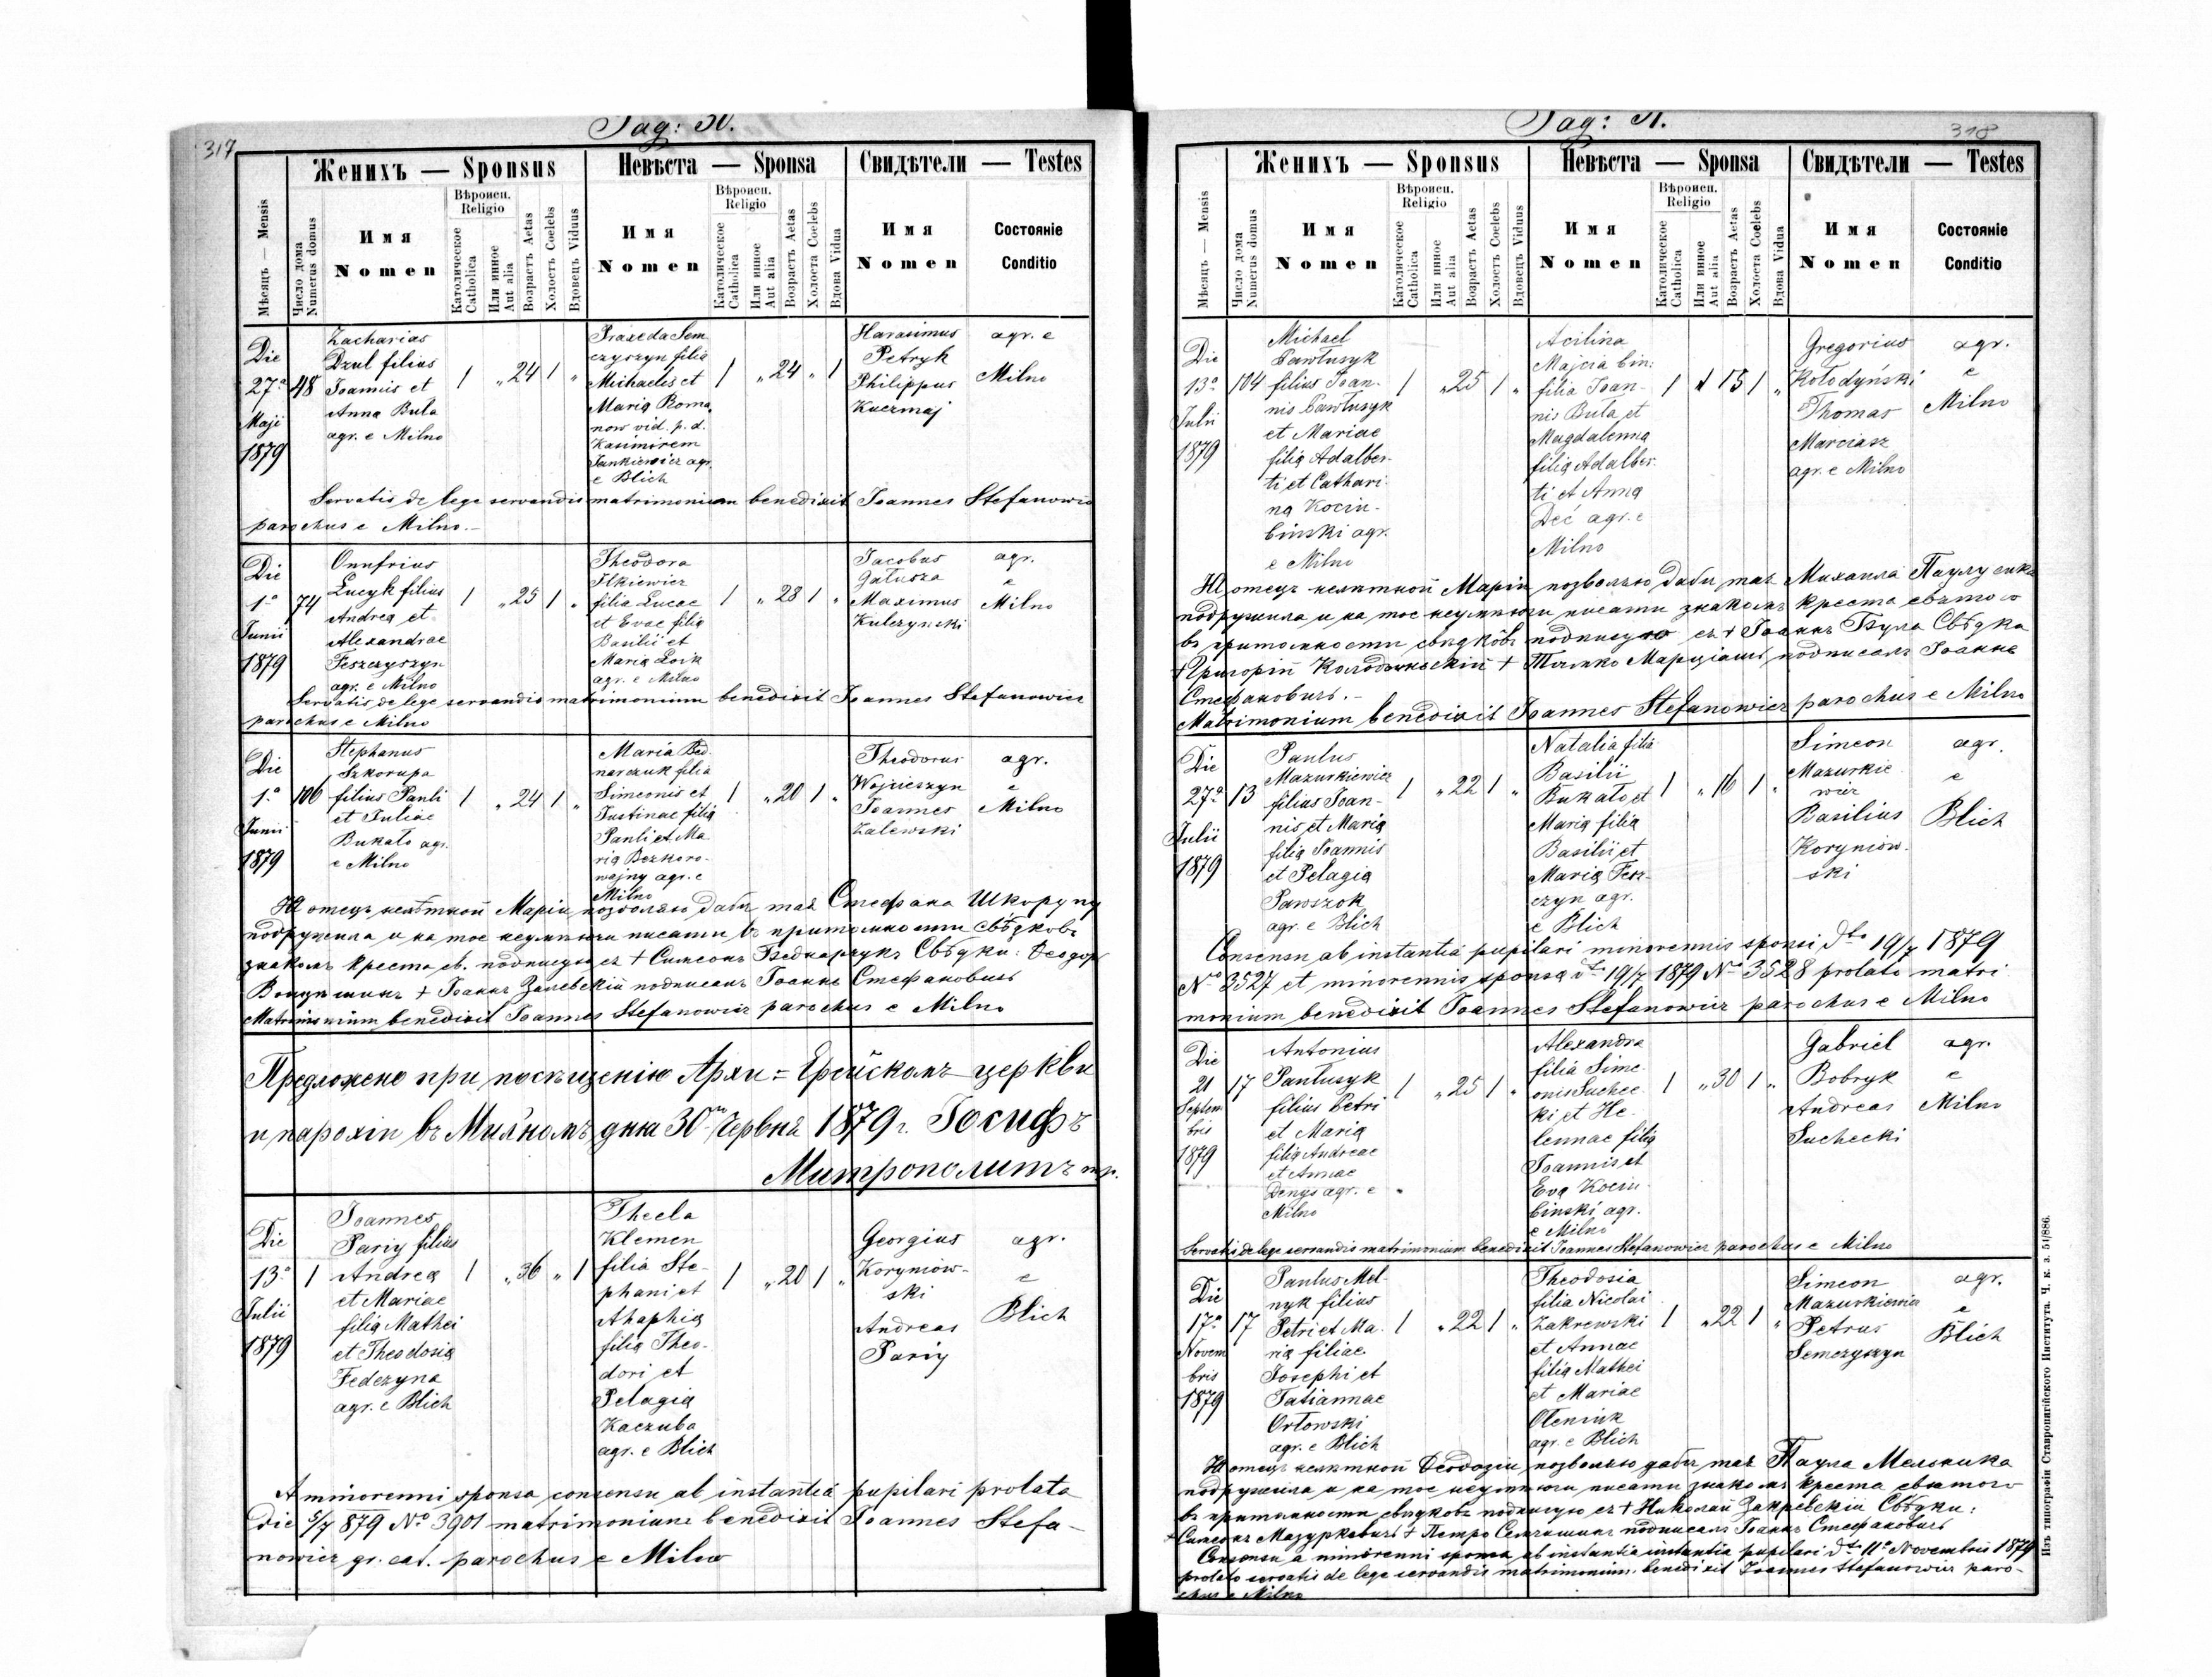 317
Pag: 30.
Женихъ — Sponsus
Невѣста — Sponsa
Свидѣтели — Testes
Мѣсяцъ — Mensis
Число дома
Numerus domus
Имя
Nomen
Вѣроисп.
Religio
Католическое
Catholica
Или инное
Aut alia
Возрастъ Aetas
Холостъ Coelebs
Вдовецъ Vidus
Имя
Nomen
Вѣроисп.
Religio
Католическое
Catholica
Или инное
Aut alia
Возрастъ Aetas
Холоста Coelebs
Вдова Vidua
Имя
Nomen
Состояніе
Conditio
Die
27a
Maji
1879
48
Zacharias
Dzul filius
Joannis et
Anna Buła
agr. e Milno
1 " 24 1 "
Praxeda Sem
czyszyn filia
Michaelis et
Maria Roma
now vid. p. d.
Kasimirem
Jankiewicz agr.
e Blich
1 " 24 " 1
Harasimus
Petryk
Philippus
Kuczmaj
agr. e
Milno
Servatis de lege servandis matrimonium benedixit Joannes Stefanowicz
parochus e Milno.-
Die
1a
Junii
1879
74
Onufrius
Lucyk filius
Andrea et
Alexandrae
Feszczyszyn
agr. e Milno
1 " 25 1 "
Theodora
Ilkiewicz
filia Lucae
et Evae filia
Basilii et
Maria Łoik
agr. e Milno
1 " 28 1 "
Jacobus
Gałusza
Maximus
Kulczyncki
agr.
e
Milno
Servatis de lege servandis matrimonium benedixit Joannes Stefanowicz
parochus e Milno
Die
1a
Junii
1879
106
Stephanus
Szkorupa
filius Pauli
et Juliae
Bukało agr.
e Milno
1 " 24 1 "
Maria Bed-
narczuk filia
Simeonis et
Justinae filia
Pauli et Ma
ria Bezkoro-
wajny agr. e
Milno
1 " 20 1 "
Theodorus
Wojcieszyn
Joannes
Zalewski
agr.
e
Milno
Я отецъ нелѣтной Маріи позволяю дабы тая Стефана Шкорупу
подружила и на тое неумѣючи писати въ притомности свѣдковъ
знакомъ креста св. подписуюся + Симеонъ Беднарчукъ Свѣдки: Ѳеодор
+ Іоаннъ Залевскій подписалъ Іоаннъ Стефановичъ
Matrimonium benedixit Joannes Stefanowicz parochus e Milno
Предложено при посѣщенію Архи=Ерейскомъ церкви
и парохіи въ Милномъ дня 30го Червня 1879 г. Іосифъ
Митрополитъ
Die
13a
Julii
1879
1
Joannes
Pariy filius
Andrea
et Mariae
filia Mathei
et Theodosia
Fedczyna
agr. e Blich
1 " 36 " 1
Thecla
Klemen
filia Ste-
phani et
Ahaphia
filia Theo-
dori et
Pelagia
Kaczuba
agr. e Blich
1 " 20 1 "
Georgius
Koryniow-
ski
Andreas
Pariy
agr.
e
Blich
A minorenni sponsa consensu ab instantiâ pupilari prolata
die 5/7 879 No 3901 matrimonium benedixit Joannes Stefa-
nowicz gr. cat. parochus e Milno
Pag: 31.
318
Женихъ — Sponsus
Невѣста — Sponsa
Свидѣтели — Testes
Мѣсяцъ — Mensis
Число дома
Numerus domus
Имя
Nomen
Вѣроисп.
Religio
Католическое
Catholica
Или инное
Aut alia
Возрастъ Aetas
Холостъ Coelebs
Вдовецъ Vidus
Имя
Nomen
Вѣроисп.
Religio
Католическое
Catholica
Или инное
Aut alia
Возрастъ Aetas
Холоста Coelebs
Вдова Vidua
Имя
Nomen
Состояніе
Conditio
Die
13a
Julii
1879
104
Michael
Pawłusyk
filius Joan-
nis Pawłusyk
et Mariae
filia Adalber-
ti et Cathari-
na Kociu-
binski agr.
e Milno
1 " 25 1 "
Acilina
filia Joan-
nis Buła et
Magdalenna
filia Adalber-
ti et Anna
Deć agr. e
Milno
15 1 "
Gregorius
Kołodyński
Thomas
Marciasz
agr. e Milno
agr.
e
Milno
отецъ нелѣтной Маріи позволяю дабы тая Михаила
подружила и на тое неумѣючи писати знакомъ креста святого
въ притомности свѣдковъ подписуюся + Іоаннъ Була Свѣдки
+ Григорій + Томко Марціашъ подписалъ Іоаннъ
Стефановичъ.-
Matrimonium benedixit Joannes Stefanowicz parochus e Milno
Die
27a
Julii
1879
13
Paulus
Mazurkiewicz
filius Joan-
nis et Maria
filia Joannis
et Pelagia
Pawszok
agr. e Blich
1 " 22 1 "
Natalia filia
Basilii
Bukało et
Maria filia
Basilii et
Maria Fesz-
czyn agr.
e Blich
1 " 16 1 "
Simeon
Mazurkie
wicz
Basilius
Koryniow-
ski
agr.
e
Blich
Consensu ab instantiâ pupilari minorennis sponsi dto 19/7 1879
No 3527 et minorennis sponsa dto 19/7 1879 No 3528 prolato matri
monium benedixit Joannes Stefanowicz parochus e Milno
Die
21
Septem
bris
1879
17
Antonius
Pautusyk
filius Petri
et Maria
filia Andreae
et Annae
Denys agr. e
Milno
1 " 25 1 "
Alexandra
filia Sime-
onis Suchec
ki et He-
lennae filia
Joannis et
Eva Kociu-
binski agr.
e Milno
1 " 30 1 "
Gabriel
Bobryk
Andreas
Suchecki
agr.
e
Milno
Servatis de lege servandis matrimonium benedixit Joannes Stefanowicz parochus e Milno
Die
17a
Novem
bris
1879
17
Paulus Mel-
nyk filius
Petri et Ma-
ria filiae
Josephi et
Tatiannae
Orłowski
agr. e Blich
1 " 22 1 "
Theodosia
filia Nicolai
Zakrewski
et Annae
filia Mathei
et Mariae
Oleniuk
agr. e Blich
1 " 22 1 "
Simeon
Mazurkiewicz
Petrus
Semczyszyn
agr.
e
Blich
Я отецъ нелѣтной Ѳеодозіи позволяю дабы тая Паула Мельника
подружила и на тое неумѣючи писати знакомъ креста святого
въ притомности свѣдковъ подписуюся + Николай Закревскій Свѣдки:
+ Симеонъ Мазуркевичъ + Петро Семчишинъ подписалъ Іоаннъ Стефановичъ
Consensu a minorenni sponsa ab instantia instantia pupilari dto 11a Novembris 1879
prolato servatis de lege servandis matrimonium benedixit Joannes Stefanowicz paro-
chus e Milno
Изъ типографіи Ставропигійского Института. Ч. к. з. 51/886.